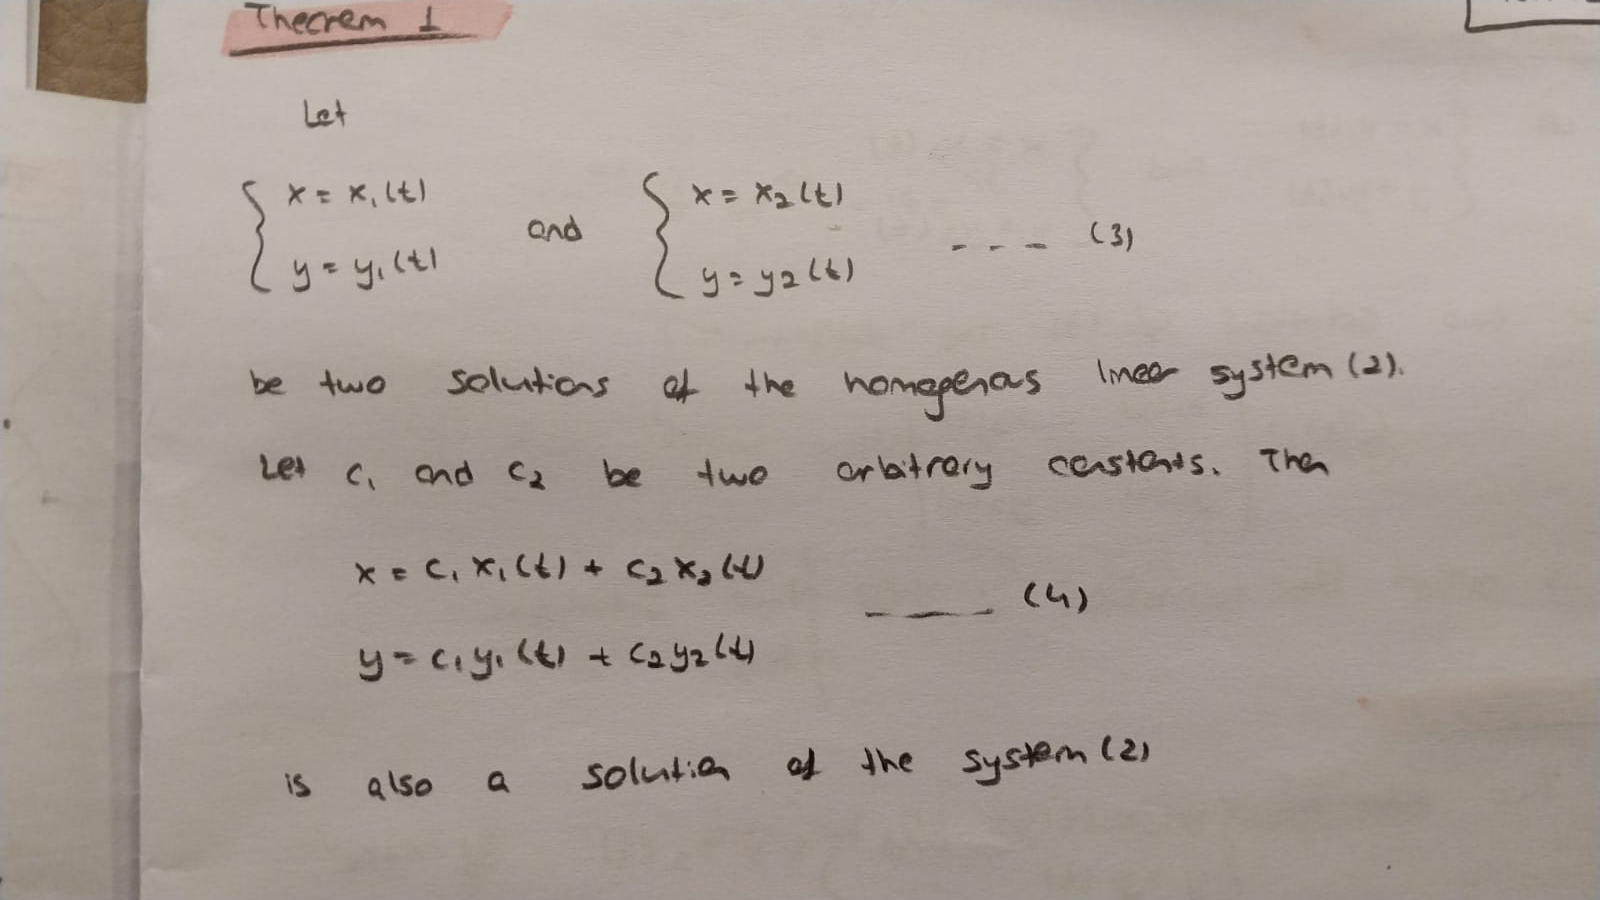 Theorem 1
Let
{ x = x₁(t) and { x = x₂(t)
y = y₁(t) y = y₂(t) - - - (3)
be two solutions of the homogenous linear system (2).
Let c₁ and c₂ be two arbitrary constants. Then
x = c₁x₁(t) + c₂x₂(t)
y = c₁y₁(t) + c₂y₂(t) ___ (4)
is also a solution of the system (2)